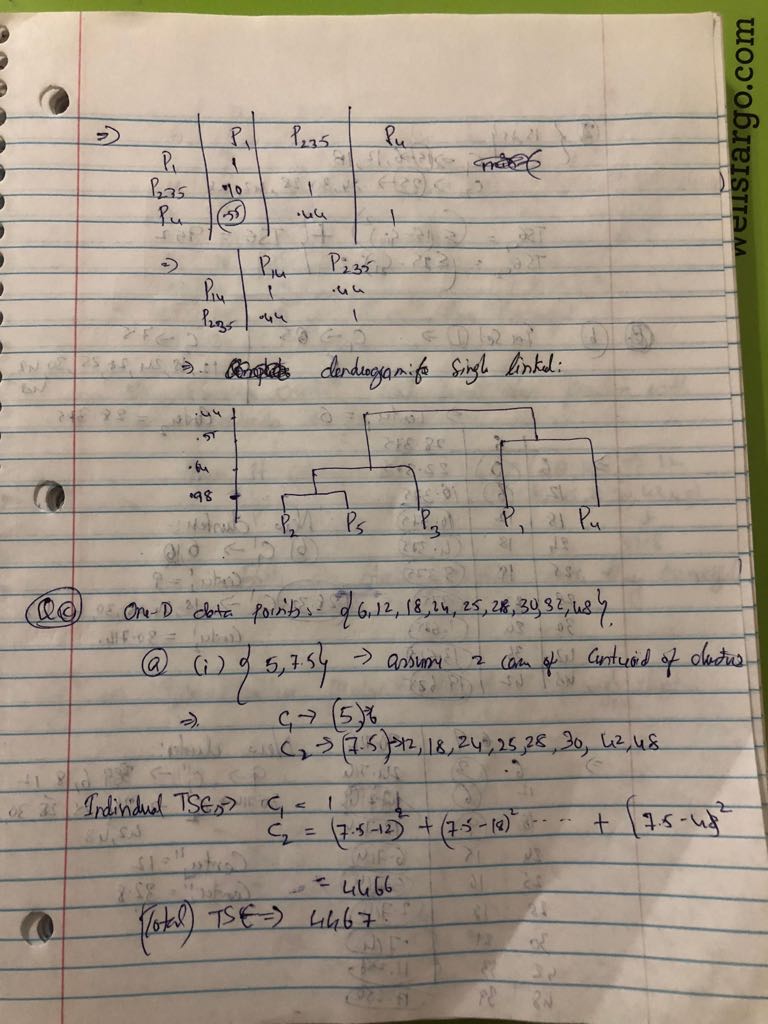 wellsfargo.com
⇒ P₁ P₂₃₅ P₄
P₁ 1
P₂₃₅ .10 1
P₄ .55 .44 1
⇒ P₁₄ P₂₃₅
P₁₄ 1 .44
P₂₃₅ .44 1
⇒ dendrogram for single linked:
.44
.55
.64
.98
P₂ P₅ P₃ P₁ P₄
Q6 One-D data points:- {6, 12, 18, 24, 25, 28, 30, 32, 48}
(a) (i) {5, 7.5} → assume 2 of centroid of cluster
⇒ C₁ → (5) 6
C₂ → (7.5) → 12, 18, 24, 25, 28, 30, 42, 48
Individual TSE ⇒ C₁ = 1
C₂ = (7.5-12)² + (7.5-18)² ..... + (7.5-48)²
= 4466
(Total) TSE ⇒ 4467.